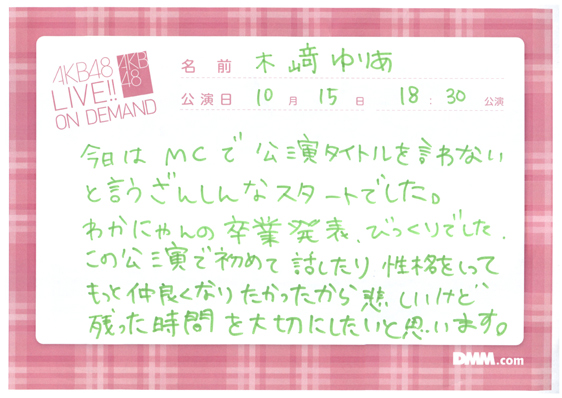 AKB48
LIVE!!
ON DEMAND
AKB
48
名前 木﨑ゆりあ
公演日 10月15日 18:30公演
今日はMCで公演タイトルを言わない
と言うざんしんなスタートでした。
わかにゃんの卒業発表、びっくりでした.
この公演で初めて話したり性格をしって
もっと仲良くなりたかったから悲しいけど
残った時間を大切にしたいと思います。
DMM.com